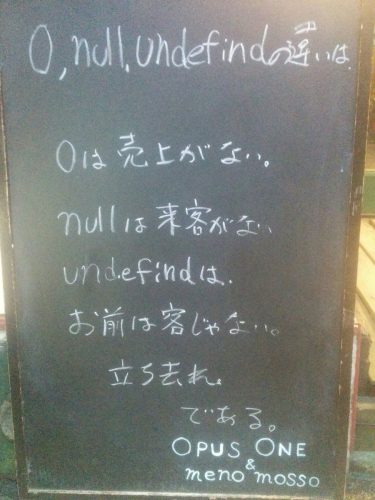 0, null, undefindの違いは
0は売上がない。
nullは来客がない
undefindは.
お前は客じゃない。
立ち去れ。
である。
OPUS ONE
&
meno mosso